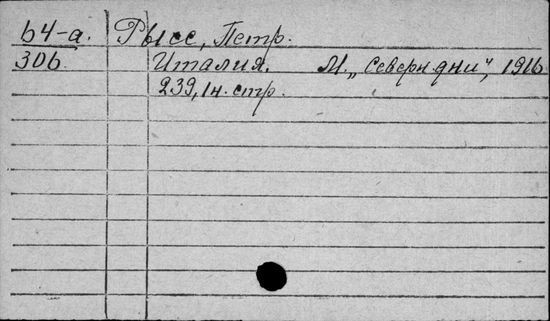 64-a. Рысс, Петр.
306. Италия. М. „Северн. дни“, 1916
239, 1 н. стр.